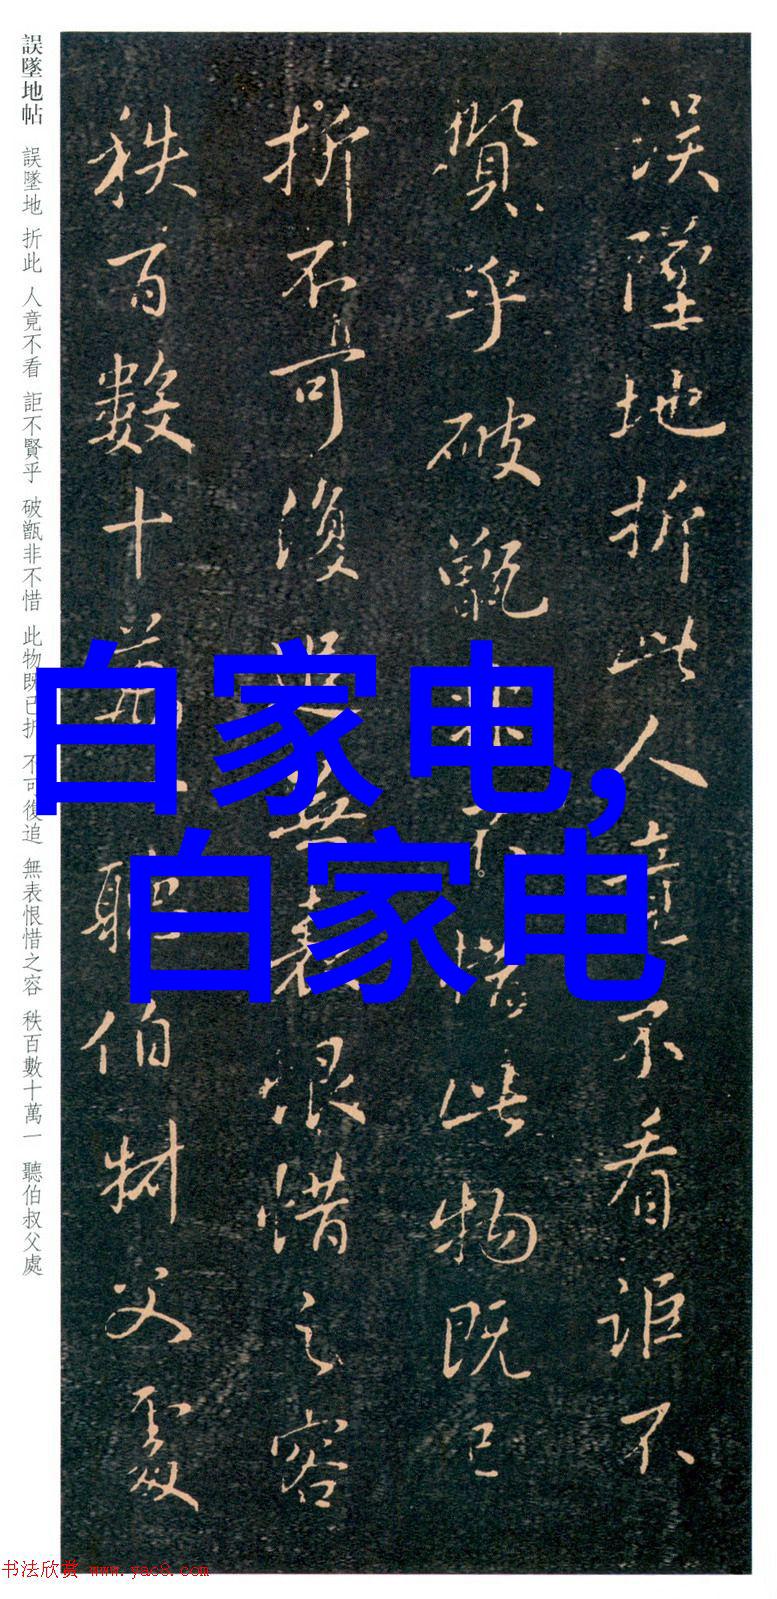 誤墜地折此人竟不看詎不
賢乎破甑非不惜此物既已
折不可復追無表恨惜之容
秩百數十萬一聽伯叔父處
誤墜地帖 誤墜地 折此 人竟不看 詎不賢乎 破甑非不惜 此物既已折 不可復追 無表恨惜之容 秩百數十萬一 聽伯叔父處
白家电,
自家电
书法欣赏 www.yac8.com